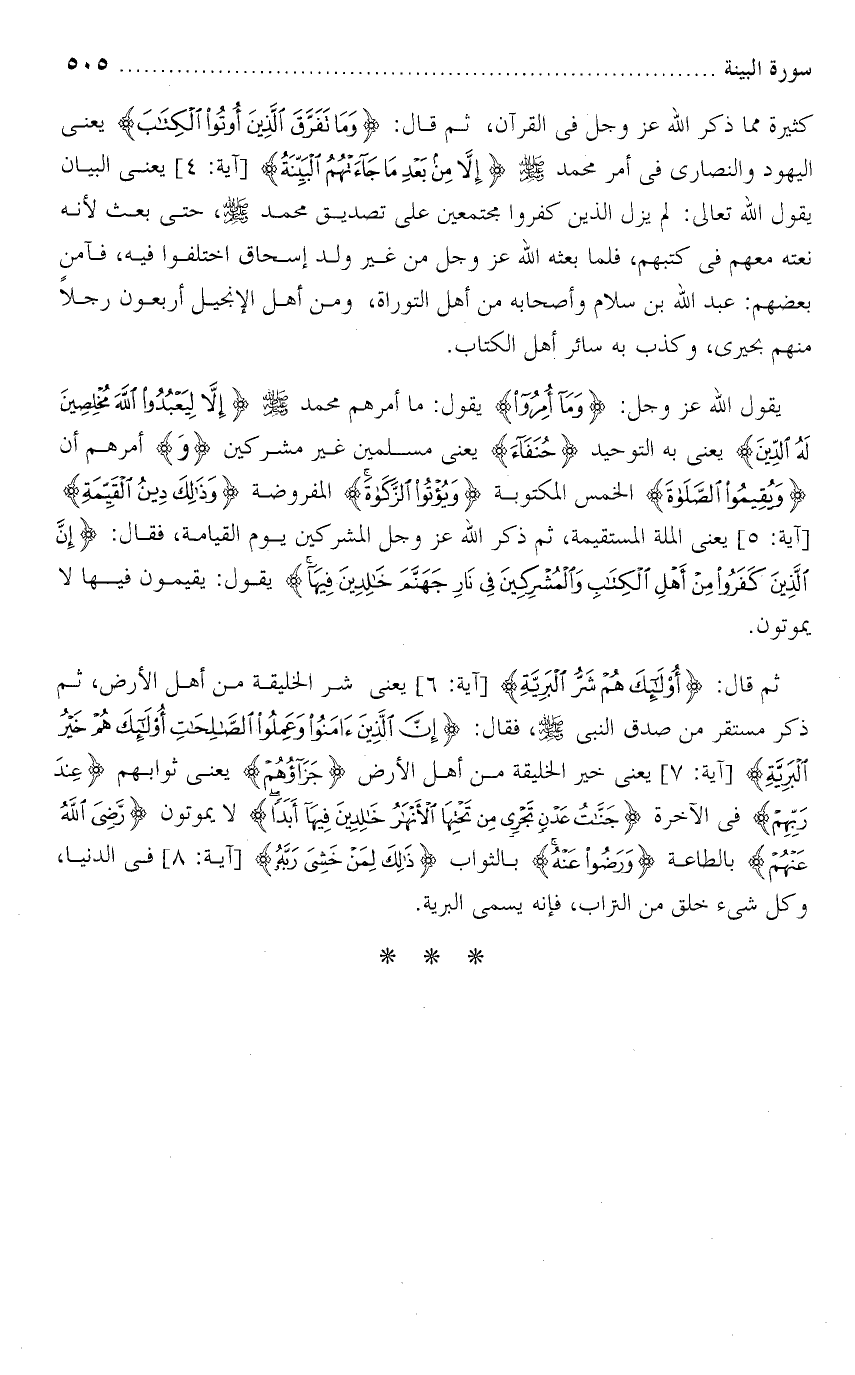 سورة البينة ........................................................................ ٥٠٥
كثيرة مما ذكر الله عز وجل فى القرآن، ثم قال: ﴿وَمَا نَفَرَّقَ ٱلَّذِينَ أُوتُوا۟ ٱلْكِتَـٰبَ﴾ يعنى
اليهود والنصارى فى أمر محمد ﷺ ﴿إِلَّا مِنۢ بَعْدِ مَا جَآءَتْهُمُ ٱلْبَيِّنَةُ﴾ [آية: ٤] يعنى البيان
يقول الله تعالى: لم يزل الذين كفروا مجتمعين على تصديق محمد ﷺ، حتى بعث لأنه
نعته معهم فى كتبهم، فلما بعثه الله عز وجل من غير ولد إسحاق اختلفوا فيه، فآمن
بعضهم: عبد الله بن سلام وأصحابه من أهل التوراة، ومن أهل الإنجيل أربعون رجلاً
منهم بحيرى، وكذب به سائر أهل الكتاب.
يقول الله عز وجل: ﴿وَمَآ أُمِرُوٓا۟﴾ يقول: ما أمرهم محمد ﷺ ﴿إِلَّا لِيَعْبُدُوا۟ ٱللَّهَ مُخْلِصِينَ
لَهُ ٱلدِّينَ﴾ يعنى به التوحيد ﴿حُنَفَآءَ﴾ يعنى مسلمين غير مشركين ﴿وَ﴾ أمرهم أن
﴿وَيُقِيمُوا۟ ٱلصَّلَوٰةَ﴾ الخمس المكتوبة ﴿وَيُؤْتُوا۟ ٱلزَّكَوٰةَ ۚ﴾ المفروضة ﴿وَذَٰلِكَ دِينُ ٱلْقَيِّمَةِ﴾
[آية: ٥] يعنى الملة المستقيمة، ثم ذكر الله عز وجل المشركين يوم القيامة، فقال: ﴿إِنَّ
ٱلَّذِينَ كَفَرُوا۟ مِنْ أَهْلِ ٱلْكِتَـٰبِ وَٱلْمُشْرِكِينَ فِى نَارِ جَهَنَّمَ خَـٰلِدِينَ فِيهَآ ۚ﴾ يقول: يقيمون فيها لا
يموتون.
ثم قال: ﴿أُو۟لَـٰٓئِكَ هُمْ شَرُّ ٱلْبَرِيَّةِ﴾ [آية: ٦] يعنى شر الخليقة من أهل الأرض، ثم
ذكر مستقر من صدق النبى ﷺ، فقال: ﴿إِنَّ ٱلَّذِينَ ءَامَنُوا۟ وَعَمِلُوا۟ ٱلصَّـٰلِحَـٰتِ أُو۟لَـٰٓئِكَ هُمْ خَيْرُ
ٱلْبَرِيَّةِ﴾ [آية: ٧] يعنى خير الخليقة من أهل الأرض ﴿جَزَآؤُهُمْ﴾ يعنى ثوابهم ﴿عِندَ
رَبِّهِمْ﴾ فى الآخرة ﴿جَنَّـٰتُ عَدْنٍ تَجْرِى مِن تَحْتِهَا ٱلْأَنْهَـٰرُ خَـٰلِدِينَ فِيهَآ أَبَدًا ۖ﴾ لا يموتون ﴿رَّضِىَ ٱللَّهُ
عَنْهُمْ﴾ بالطاعة ﴿وَرَضُوا۟ عَنْهُ ۚ﴾ بالثواب ﴿ذَٰلِكَ لِمَنْ خَشِىَ رَبَّهُۥ﴾ [آية: ٨] فى الدنيا،
وكل شىء خلق من التراب، فإنه يسمى البرية.
* * *